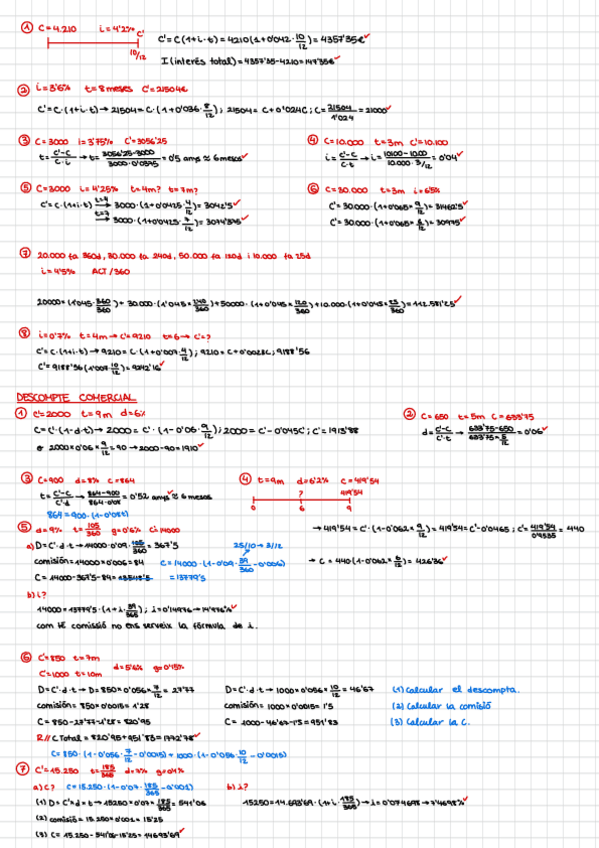 ① C = 4.210 i = 4'2% C'
10/12
C' = C(1+i·t) = 4210(1+0'042·10/12) = 4357'35€ ✓
I (interés total) = 4357'35-4210 = 147'35€ ✓
② i = 3'6% t = 8 meses C' = 21504€
C' = C·(1+i·t) → 21504 = C·(1+0'036·8/12); 21504 = C+0'024C; C = 21504/1'024 = 21000 ✓
③ C = 3000 i = 3'75% C' = 3056'25
t = C'-C/C·i → t = 3056'25-3000/3000·0'0375 = 0'5 anys ≈ 6 mesos ✓
④ C = 10.000 t = 3m C' = 10.100
i = C'-C/C·t → i = 10100-10.000/10.000·3/12 = 0'04 ✓
⑤ C = 3000 i = 4'25% t = 4m? t = 7m?
C' = C·(1+i·t) t=4 → 3000·(1+0'0425·4/12) = 3042'5 ✓
t=7 → 3000·(1+0'0425·7/12) = 3074'375 ✓
⑥ C = 30.000 t = 3m i = 6'5%
C' = 30.000·(1+0'065×9/12) = 31462'5 ✓
C' = 30.000·(1+0'065×6/12) = 30975 ✓
⑦ 20.000 fa 360d, 30.000 fa 240d, 50.000 fa 120d i 10.000 fa 25d
i = 4'5% ACT/360
20000×(1'045·360/360) + 30.000·(1'045×240/360) + 50000·(1+0'045×120/360) + 10.000·(1+0'045×25/360) = 112.581'25 ✓
⑧ i = 0'7% t = 4m → C' = 9210 t = 6 → C' = ?
C' = C·(1+i·t) → 9210 = C·(1+0'007·4/12); 9210 = C+0'0023C; 9188'56
C' = 9188'56(1'007·10/12) = 9242'16 ✓
DESCOMPTE COMERCIAL
① C' = 2000 t = 9m d = 6%
C = C'·(1-d·t) → 2000 = C'·(1-0'06·9/12); 2000 = C'-0'045C; C' = 1913'88
o 2000×0'06×9/12 = 90 → 2000-90 = 1910 ✓
② C = 650 t = 5m C = 633'75
d = C'-C/C'·t → 633'75-650/633'75×5/12 = 0'06 ✓
③ C = 900 d = 8% C = 864
t = C'-C/C'·d → 864-900/864·0'08 = 0'52 anys ✓ ≈ 6 mesos
864 = 900·(1-0'08t)
④ t = 9m d = 6'2% C = 419'54
? 419'54
0 6 9
→ 419'54 = C'·(1-0'062×9/12) = 419'54 = C'-0'0465; C' = 419'54/0'9535 = 440
→ C = 440(1-0'062×6/12) = 426'36 ✓
⑤ d = 9% t = 105/360 g = 0'6% C' = 14000
a) D = C'·d·t → 14000·0'09·105/360 = 367'5
25/10 → 3/12
comisión = 14000×0'006 = 84 C = 14000·(1-0'09·39/360-0'006)
C = 14000-367'5-84 = 13548'5 = 13779'5
b) i?
14000 = 13779'5·(1+i·39/365); i = 0'14976 → 14'976% ✓
com té comissió no ens serveix la fórmula de i.
⑥ C' = 850 t = 7m
C' = 1000 t = 10m d = 5'6% g = 0'15%
D = C'·d·t → D = 850×0'056×7/12 = 27'77
comisión = 850×0'0015 = 1'28
C = 850-27'77-1'28 = 820'95
D = C'·d·t → 1000×0'056×10/12 = 46'67
comisión = 1000×0'0015 = 1'5
C = 1000-46'67-1'5 = 951'83
(1) Calcular el descompta.
(2) Calcular la comisió
(3) Calcular la C.
R// C Total = 820'95+951'83 = 1772'78 ✓
C = 850·(1-0'056·7/12-0'0015) + 1000·(1-0'056·10/12-0'0015)
⑦ C' = 15.250 t = 185/365 d = 7% g = 0'1%
a) C? C = 15.250·(1-0'07·185/365-0'001)
(1) D = C'×d×t → 15250×0'07×185/365 = 541'06
(2) comisió = 15.250×0'001 = 15'25
(3) C = 15.250-541'06-15'25 = 14693'69 ✓
b) i?
15250 = 14.693'69·(1+i·185/365) → i = 0'074698 → 7'4698% ✓